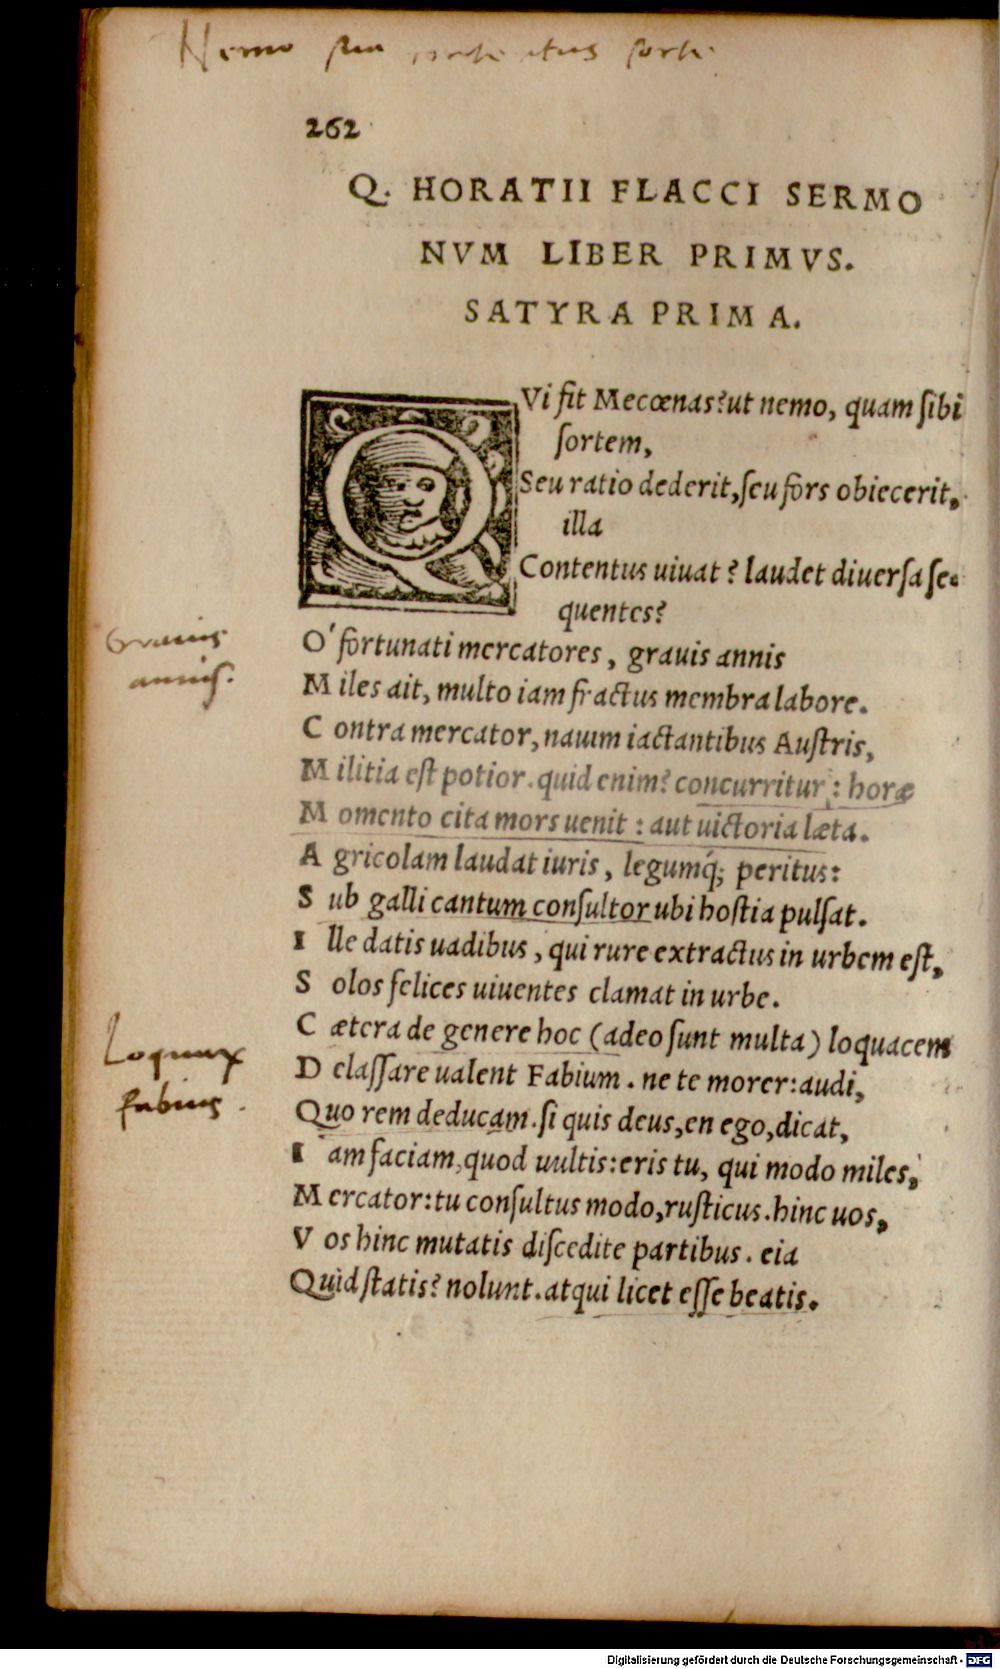 Nemo sua sorte
262
Q. HORATII FLACCI SERMO
NVM LIBER PRIMVS.
SATYRA PRIMA.
QVi fit Mecœnas? ut nemo, quam ſibi
ſortem,
Seu ratio dederit, ſeu fors obiecerit,
illa
Contentus uiuat? laudet diuerſa ſe-
quentes?
O' fortunati mercatores, grauis annis
Miles ait, multo iam fractus membra labore.
Contra mercator, nauim iactantibus Auſtris,
Militia eſt potior. quid enim? concurritur: horæ
Momento cita mors uenit: aut uictoria læta.
Agricolam laudat iuris, legumq́; peritus:
Sub galli cantum conſultor ubi hoſtia pulſat.
Ille datis uadibus, qui rure extractus in urbem eſt,
Solos felices uiuentes clamat in urbe.
Cætera de genere hoc (adeo ſunt multa) loquacem
Delaſſare ualent Fabium. ne te morer: audi,
Quo rem deducam. ſi quis deus, en ego, dicat,
Iam faciam, quod uultis: eris tu, qui modo miles,
Mercator: tu conſultus modo, ruſticus. hinc uos,
Vos hinc mutatis diſcedite partibus. eia
Quid ſtatis? nolunt. atqui licet eſſe beatis.
Grauis
annis.
Loquax
fabius.
Digitalisierung gefördert durch die Deutsche Forschungsgemeinschaft - DFG